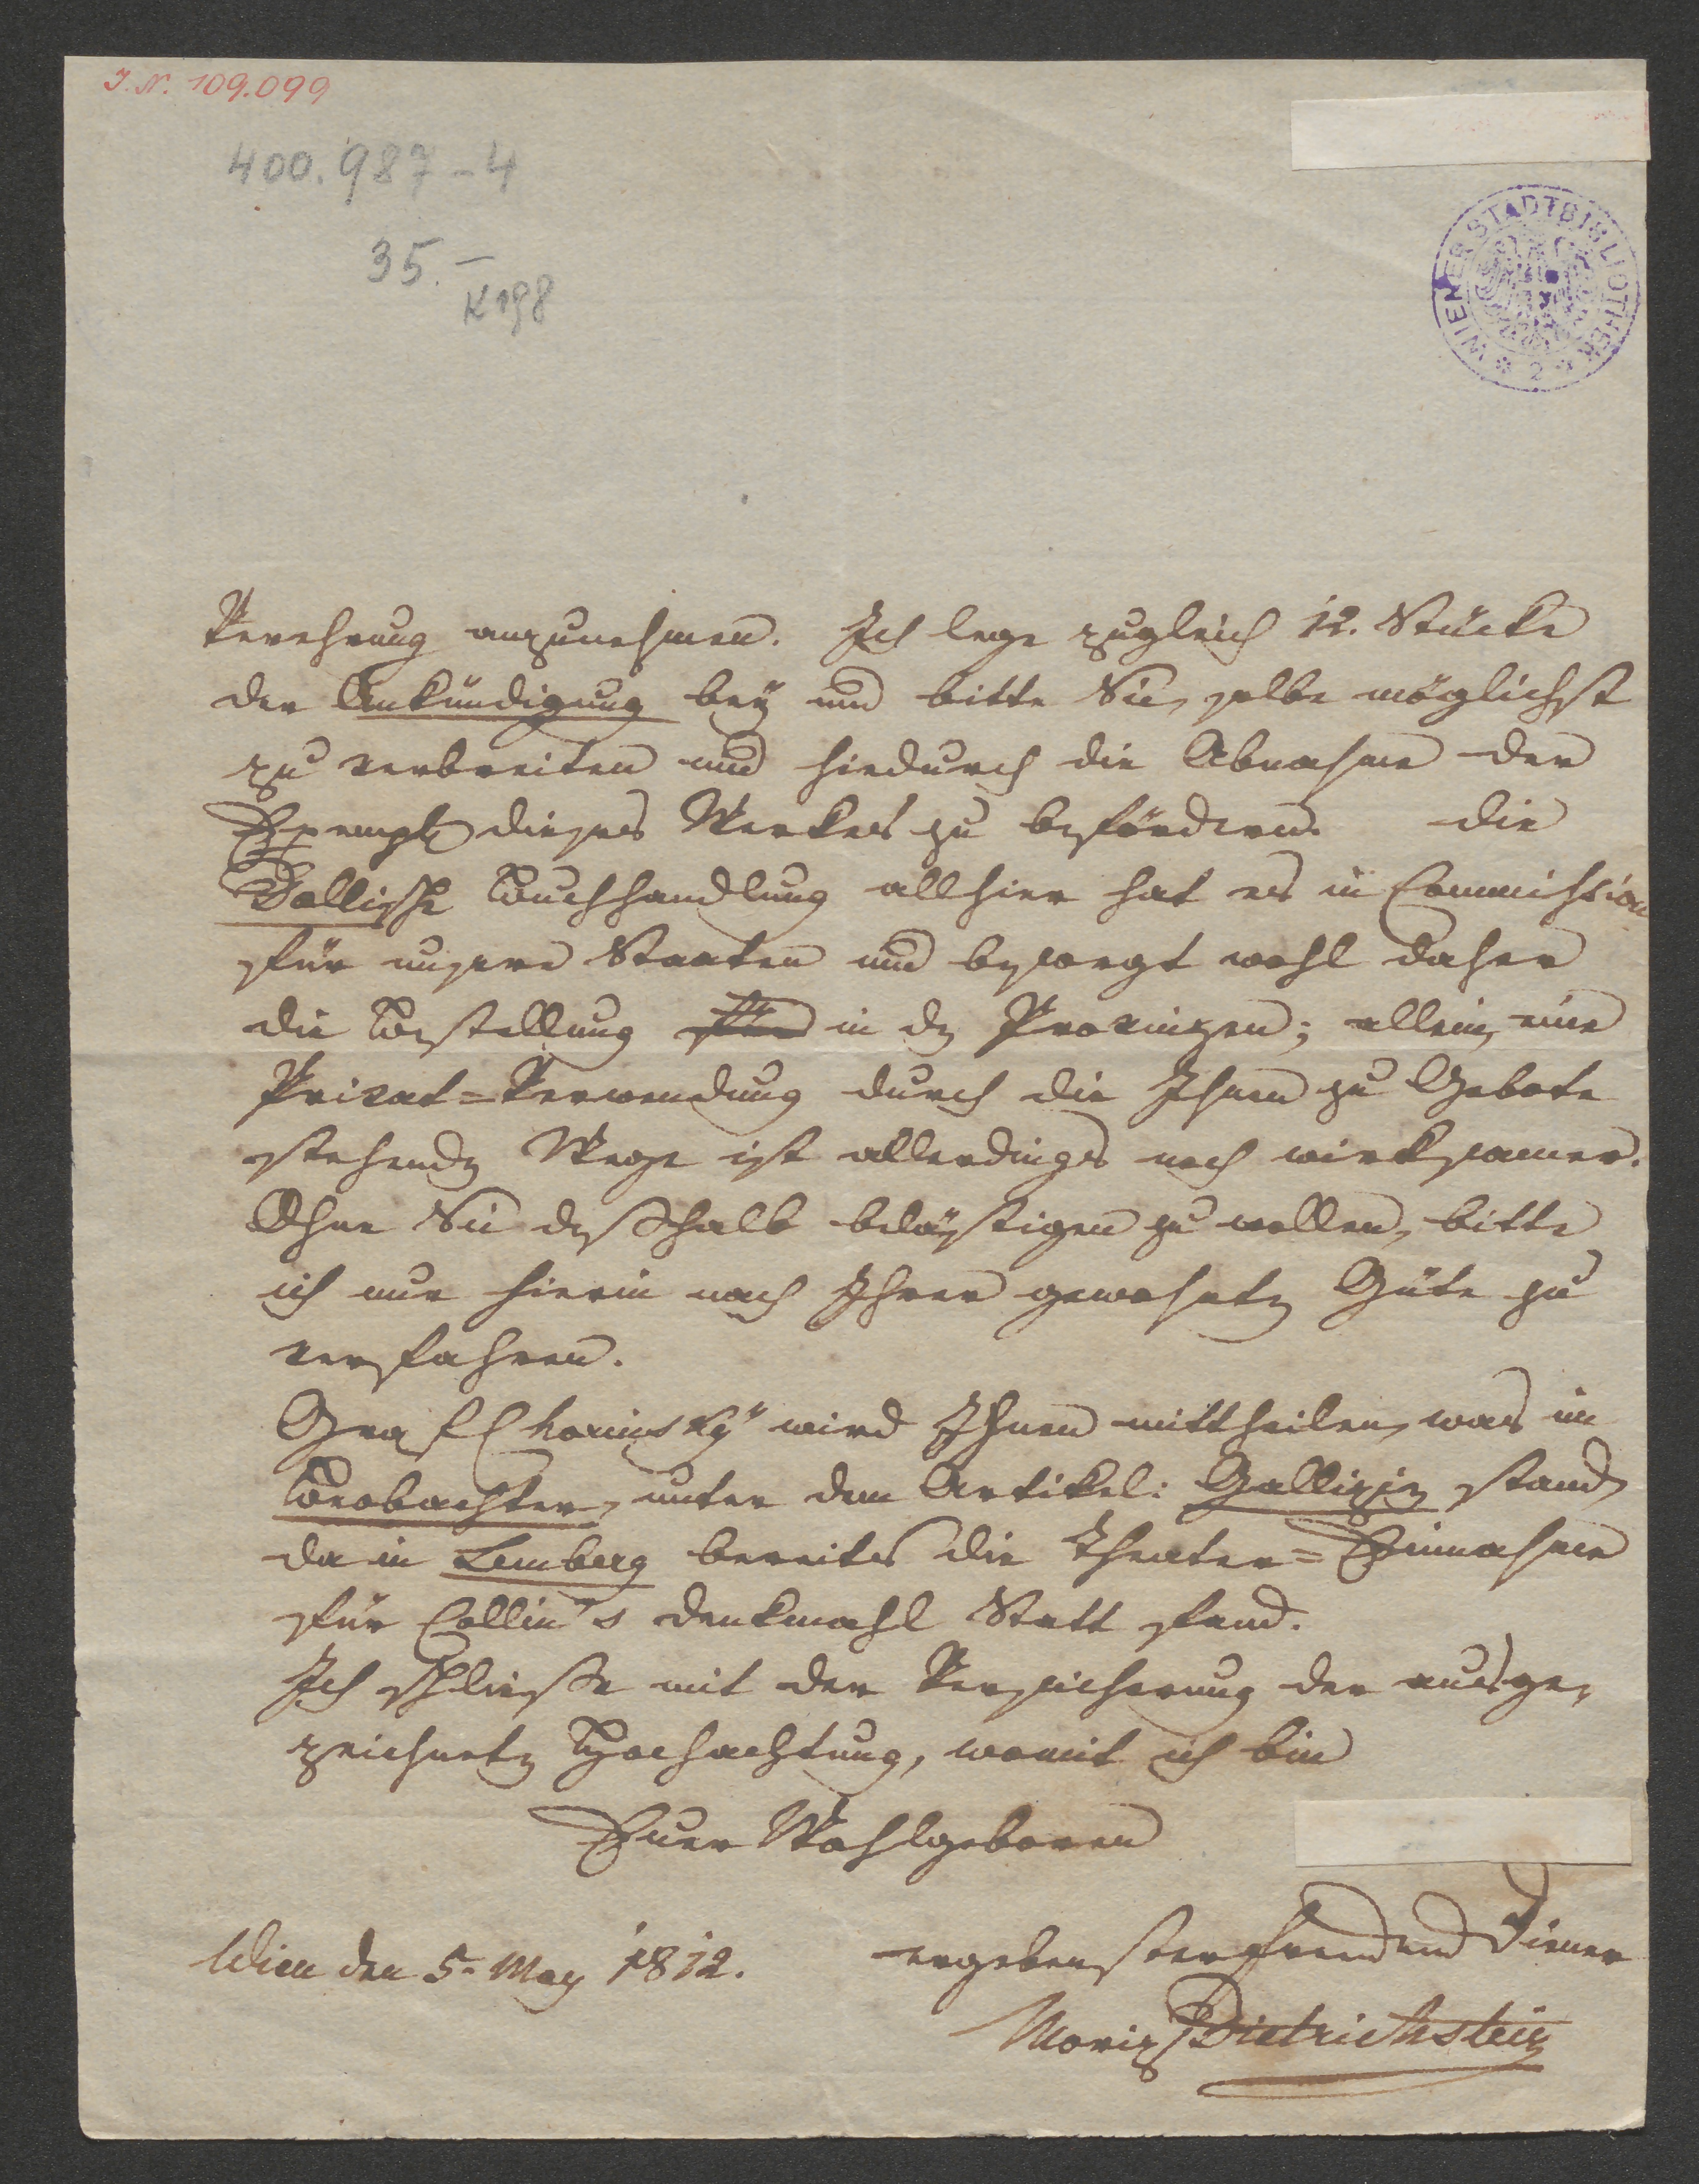 J.N. 109.099
400.987-4
35.-
K198
WIENER STADTBIBLIOTHEK
* 2 *
Verehrung anzunehmen. Ich lege zugleich 12. Stücke
der Ankündigung beÿ und bitte Sie, selbe möglichst
zu verbreiten und hiedurch die Abnahme der
Exempl dieses Werkes zu befördern. Die
Dollische Buchhandlung allhier hat es in Commission
für unsere Staaten und besorgt wohl daher
die Bestellung für in den Provinzen; allein, eine
Privat=Verwendung durch die Ihnen zu Gebote
stehenden Wege ist allerdings noch wirksamer.
Ohne Sie deßhalb belästigen zu wollen, bitte
ich nur hierin nach Ihrer gewohnten Güte zu
verfahren.
Graf Chorinskÿ wird Ihnen mittheilen, was im
Beobachter, unter dem Artikel: Gallizien stand,
da in Lemberg bereits die Theater=Einnahme
für Collin's Denkmahl Statt fand.
Ich schließe mit der Versicherung der ausge-
zeichneten Hochachtung, womit ich bin
Euer Wohlgeboren
Wien den 5. May 1812.
ergebenster Freund und Diener
Moriz Dietrichstein